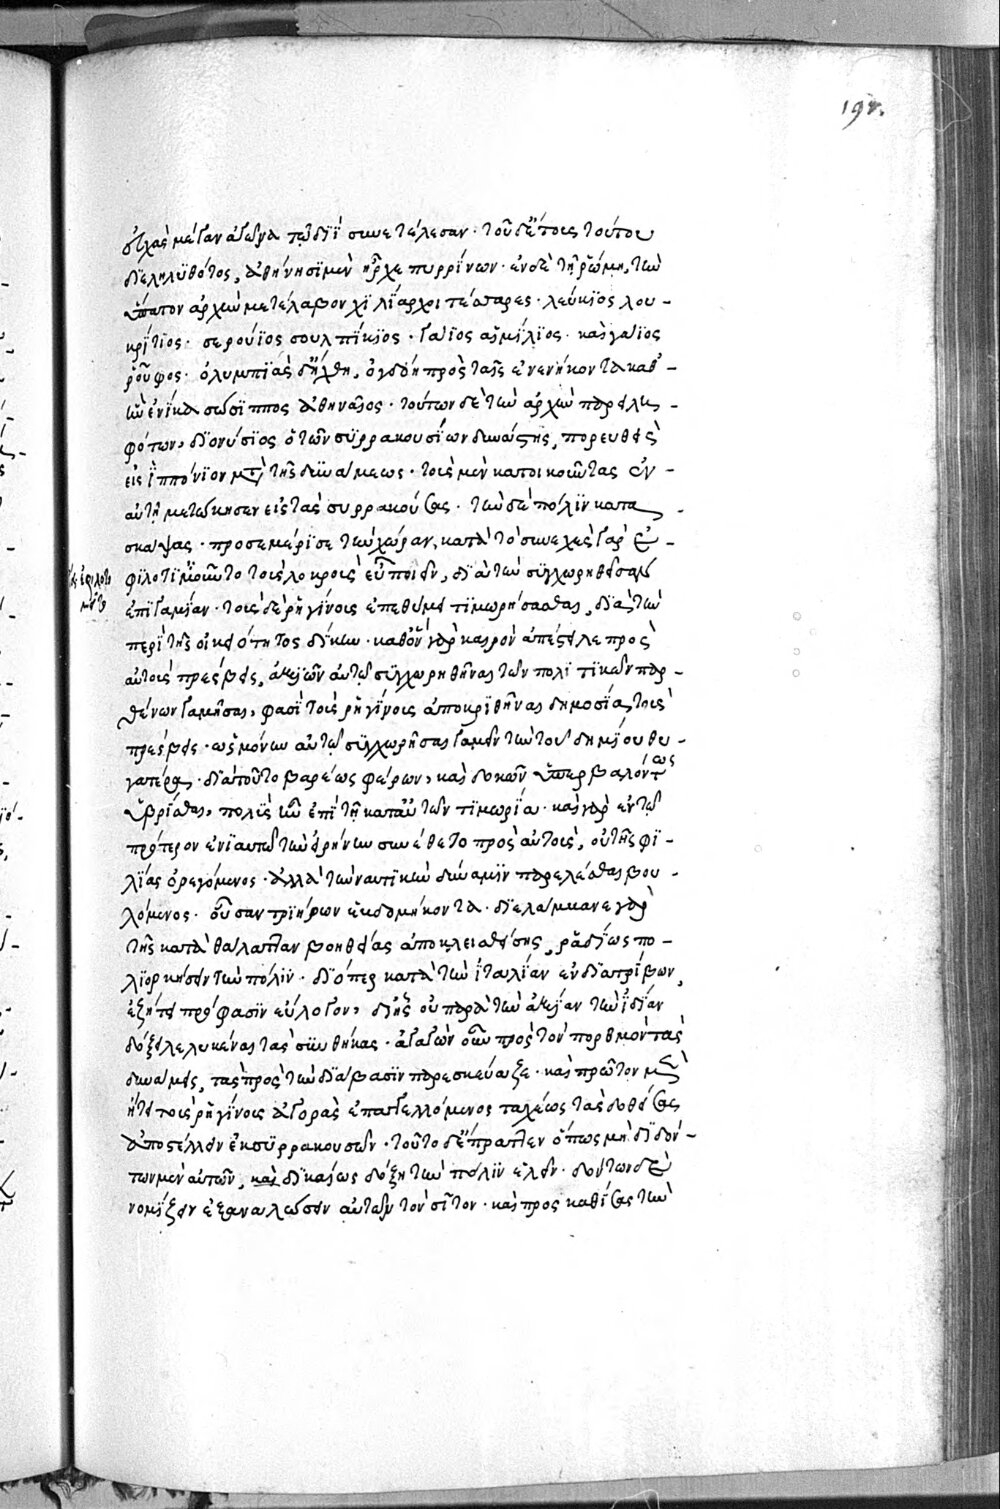 197.
εὐχὰς μέγαν ἀγῶνα τῶ διῒ συνετέλεσαν · τοῦ δ' ἔτους τούτου
διεληλυθότος, ἀθήνησι μὲν ἦρχε πυρρίνων · ἐν δὲ τῆ ῥώμη, τὴν
ὕπατον ἀρχὴν μετέλαβον χιλίαρχοι τέσσαρες · λεύκιος λου-
κρίτιος · σερούϊος σουλπίκιος · γάϊος αἰμίλιος · καὶ γάϊος
ῥοῦφος · ὀλυμπιὰς δ' ἤχθη, ὀγδόη πρὸς ταῖς ἐνενήκοντα καθ'
ἣν ἐνίκα σώσιππος ἀθηναῖος · τούτων δὲ τὴν ἀρχὴν παρειλη-
φότων, διονύσιος ὁ τῶν συρρακουσίων δυνάστης, πορευθεὶς
εἰς ἱππόνιον μετὰ τῆς δυνάμεως · τοὺς μὲν κατοικοῦντας ἐν
αὐτῆ μετώκησεν εἰς τὰς συρρακούσας · τὴν δὲ πόλιν κατα-
σκάψας · προσεμέρισε τὴν χώραν, κατὰ τὸ συνεχὲς γὰρ ἐ-
φιλοτιμοῦντο τοὺς λοκροὺς εὖ ποιεῖν, διὰ τὴν συγχωρηθεῖσαν
ἐπιγαμίαν · τοὺς δὲ ῥηγίνους ἐπεθύμει τιμωρήσασθαι, διὰ τὴν
περὶ τῆς οἰκειότητος δίκην · καθ' ὃν γὰρ καιρὸν ἀπέστειλε πρὸς
αὐτοὺς πρέσβεις, ἀξιῶν αὐτῶ συγχωρηθῆναι τῶν πολιτικῶν παρ-
θένων γαμῆσαι, φασὶ τοὺς ῥηγίνους ἀποκριθῆναι δημοσίᾳ τοῖς
πρέσβεις · ὡς μόνην αὐτῶ συγχωρῆσαι γαμεῖν τὴν τοῦ δημίου θυ-
γατέρα · διὰ τοῦτο βαρέως φέρων, καὶ δοκῶν ὑπερβαλόντως
ὑβρίσθαι, πολὺς ἦν ἐπὶ τῆ κατ' αὐτῶν τιμωρία · καὶ γὰρ ἐν τῶ
πρότερον ἐνιαυτῶ τὴν εἰρήνην συνέθετο πρὸς αὐτοὺς, οὐ τῆς φι-
λίας ὀρεγόμενος · ἀλλὰ τὴν ναυτικὴν δύναμιν παρελέσθαι βου-
λόμενος · οὖσαν τριήρων ἑβδομήκοντα · διελάμβανε γὰρ
τῆς κατὰ θάλατταν βοηθείας ἀποκλεισθείσης, ῥαδίως πο-
λιορκήσειν τὴν πόλιν · διόπερ κατὰ τὴν ἰταλίαν ἐνδιατρίβων,
ἐζήτει πρόφασιν εὔλογον, δι' ἧς οὐ παρὰ τὴν ἀξίαν τὴν ἰδίαν
δόξει λελυκέναι τὰς συνθήκας · ἀγαγὼν οὖν πρὸς τὸν πορθμὸν τὰς
δυνάμεις, τὰ πρὸς τὴν διάβασιν παρεσκεύαζε · καὶ πρῶτον μὲν
ἤτει τοὺς ῥηγίνους ἀγορὰς ἐπαγγελλόμενος ταχέως τὰς δοθείσας
ἀποστέλλειν ἐκ συρρακουσῶν · τοῦτο δ' ἔπραττεν ὅπως μὴ διδόν-
των μὲν αὐτῶν, καὶ δικαίως δόξη τὴν πόλιν ἑλεῖν · δόντων δὲ
νομίζειν ἐξαναλώσειν αὐτῶν τὸν σῖτον · καὶ προσκαθίσας τὴν